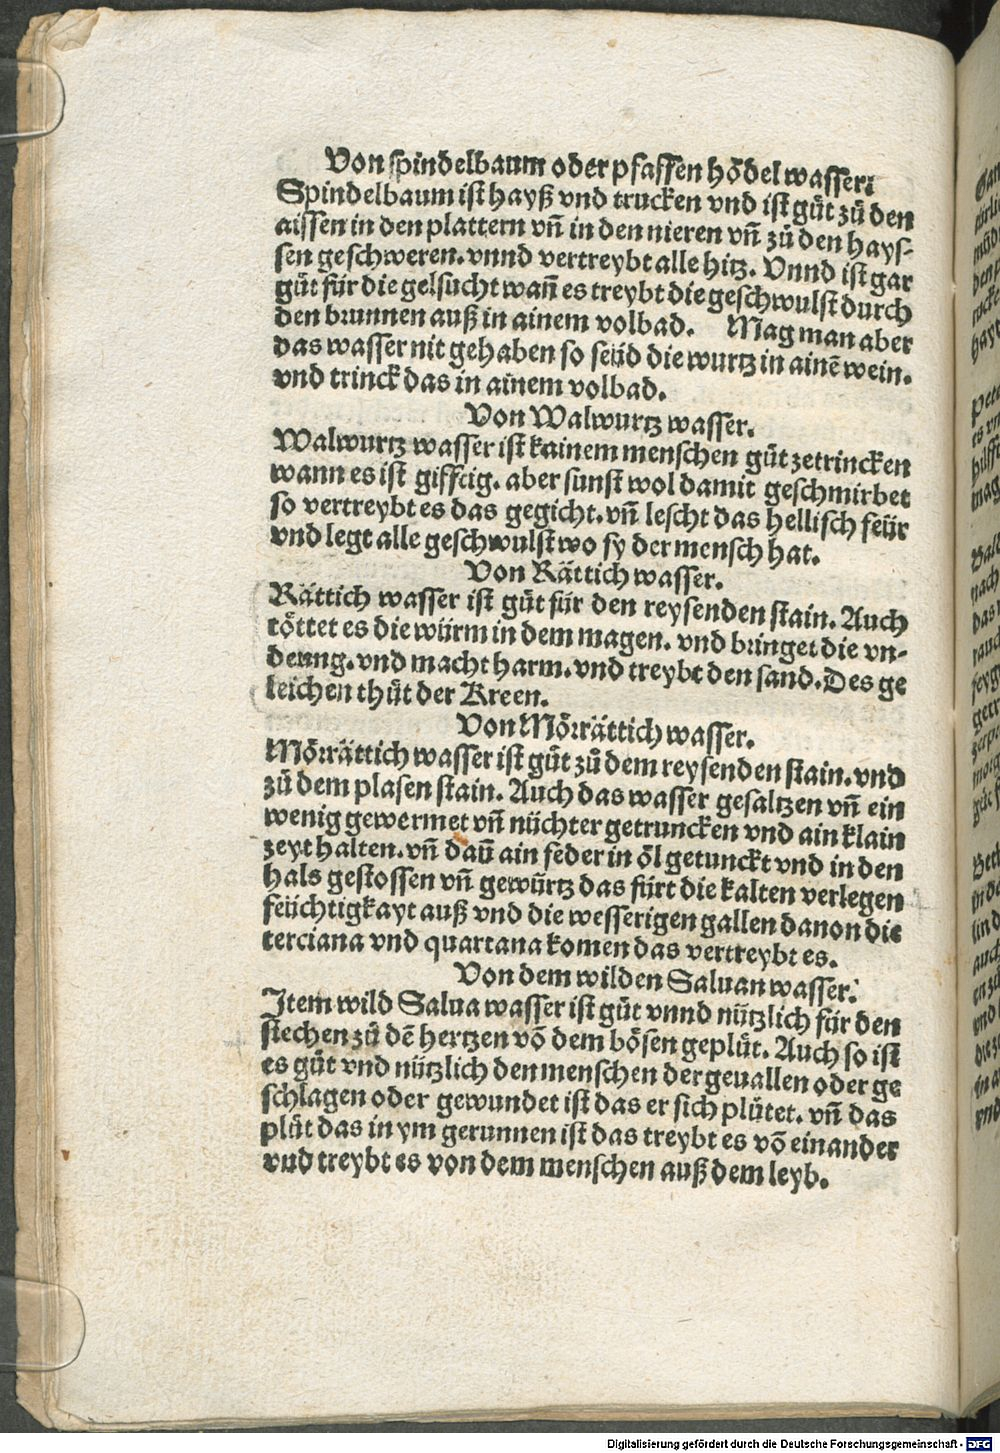 Von spindelbaum oder pfaffen hödel wasser:
Spindelbaum ist hayß vnd trucken vnd ist gůt zů den
aissen in den plattern vñ in den nieren vñ zů den hays-
sen geschweren. vnnd vertreybt alle hitz. Vnnd ist gar
gůt für die gelsucht wañ es treybt die geschwulst durch
den brunnen auß in ainem volbad. Mag man aber
das wasser nit gehaben so seüd die wurtz in ainē wein.
vnd trinck das in ainem volbad.
Von Walwurtz wasser.
Walwurtz wasser ist kainem menschen gůt zetrincken
wann es ist gifftig. aber sunst wol damit geschmirbet
so vertreybt es das gegicht. vñ lescht das hellisch feür
vnd legt alle geschwulst wo sy der mensch hat.
Von Rättich wasser.
Rättich wasser ist gůt für den reysenden stain. Auch
töttet es die würm in dem magen. vnd bringet die vn-
deung. vnd macht harm. vnd treybt den sand. Des ge
leichen thůt der Kreen.
Von Mörrättich wasser.
Mörrättich wasser ist gůt zů dem reysenden stain. vnd
zů dem plasen stain. Auch das wasser gesaltzen vñ ein
wenig gewermet vñ nüchter getruncken vnd ain klain
zeyt halten. vñ dañ ain feder in öl getunckt vnd in den
hals gestossen vñ gewürtz das fürt die kalten verlegen
feüchtigkayt auß vnd die wesserigen gallen danon die
terciana vnd quartana komen das vertreybt es.
Von dem wilden Saluan wasser:
Item wild Salua wasser ist gůt vnnd nützlich für den
stechen zů dē hertzen vō dem bösen geplůt. Auch so ist
es gůt vnd nützlich den menschen der geuallen oder ge
schlagen oder gewundet ist das er sich plůtet. vñ das
plůt das in ym gerunnen ist das treybt es vō einander
vnd treybt es von dem menschen auß dem leyb.
Digitalisierung gefördert durch die Deutsche Forschungsgemeinschaft - DFG